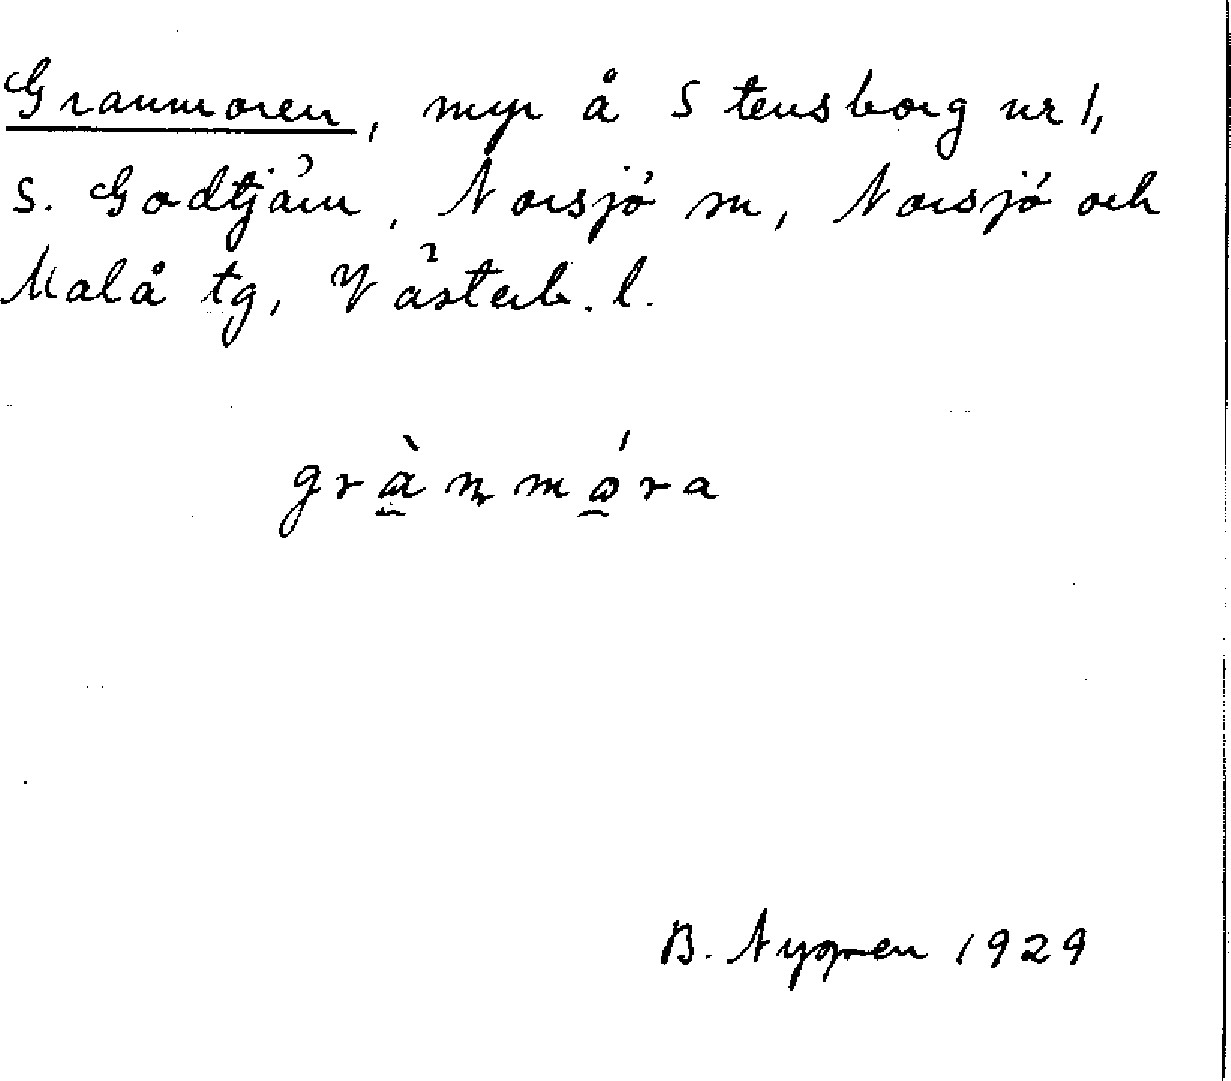 Granmoren, myr å Stensborg nr 1,
S. Godtjärn, Norsjö sn, Norsjö och
Malå tg, Västerb. l.
grànmóra
B. Nygren 1929